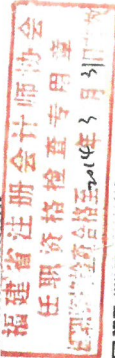 福建省注册会计师协会
任职资格检查专用章
资格合格至2014年3月31日